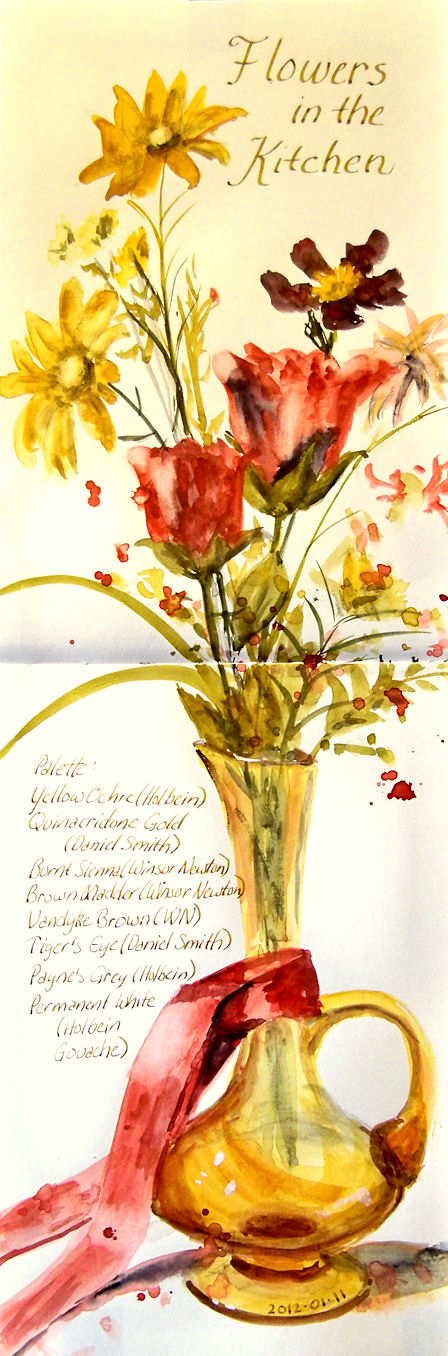 Flowers
in the
Kitchen
Palette:
Yellow Ochre (Holbein)
Quinacridone Gold
(Daniel Smith)
Burnt Sienna (Winsor Newton)
Brown Madder (Winsor Newton)
Vandyke Brown (WN)
Tiger's Eye (Daniel Smith)
Payne's Grey (Holbein)
Permanent White
(Holbein
Gouache)
2012-01-11